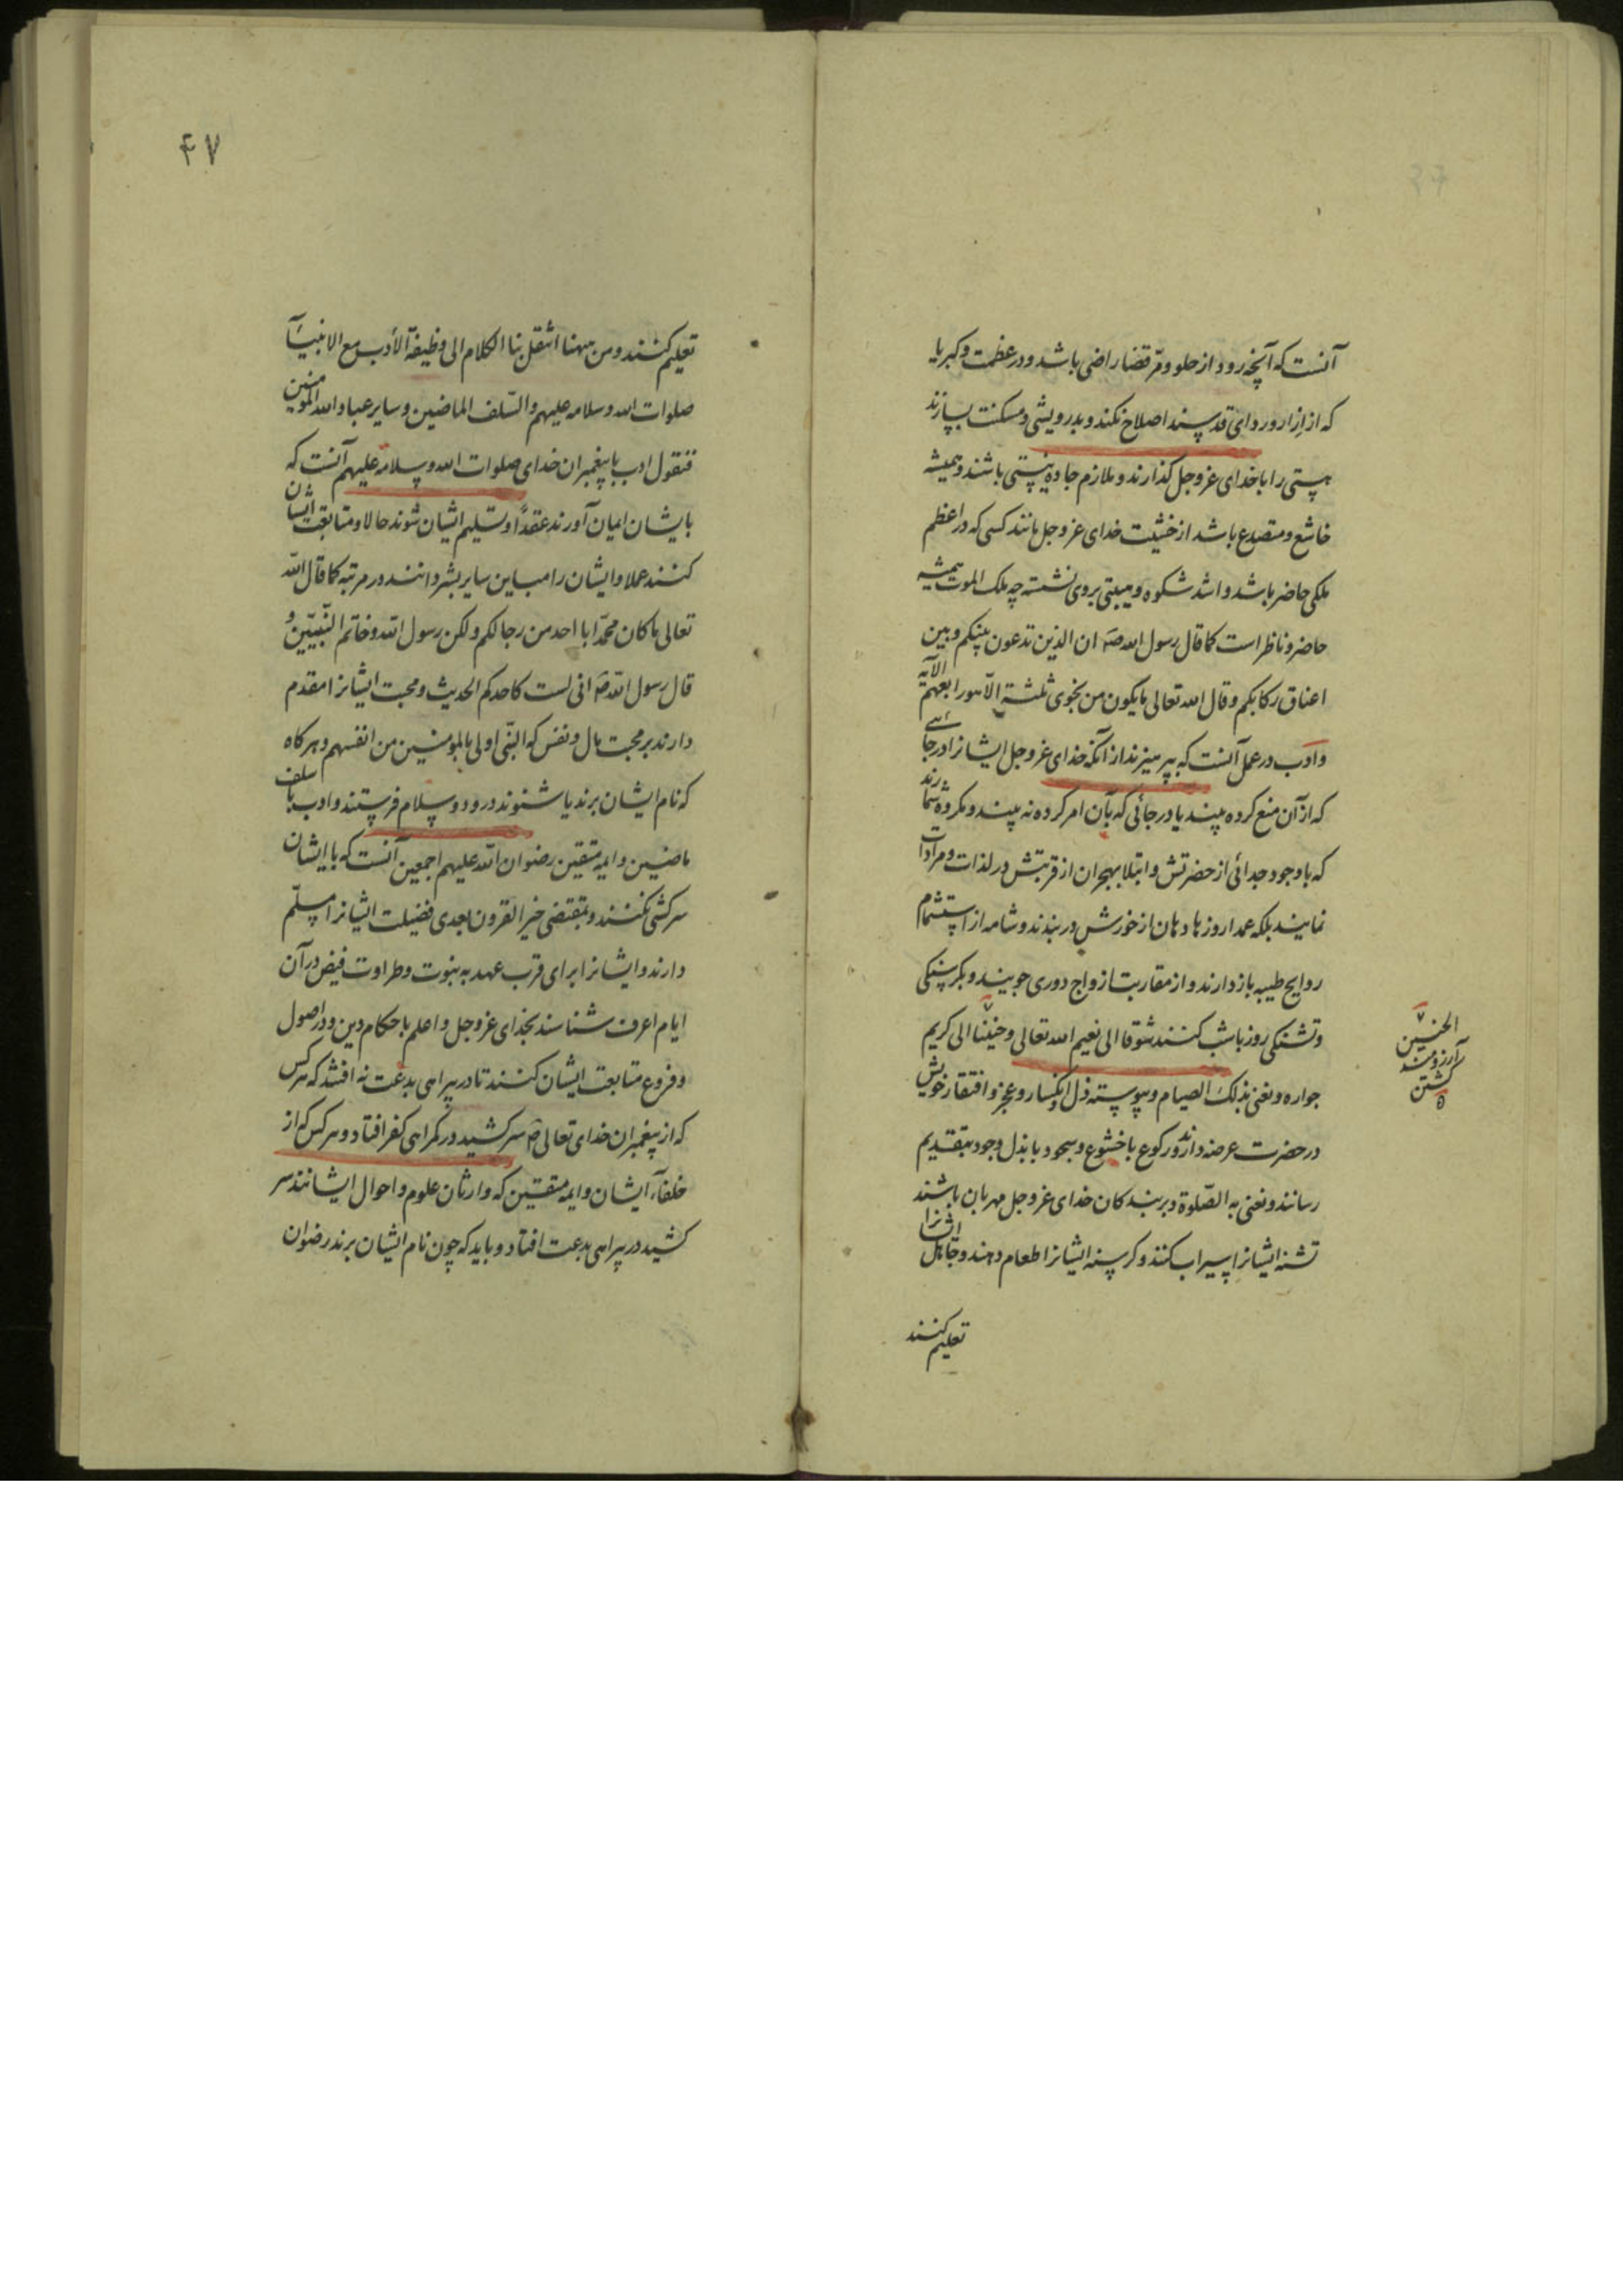 آنست که آنچه رود از حلو و مرّ قضا راضی باشد و در عظمت و کبریا
که از ازار و ردای قد پسند اصلاح نکند و بدرویشی و مسکنت بسازند
هستی را با خدای عز و جل گذارند و ملازم جاده نیستی باشند و همیشه
خاشع و متصدع باشد از خشیت خدای عز و جل مانند کسی که در اعظم
ملکی حاضر باشد و اشد شکوه و هیبتی بر وی نشسته چه ملک الموت همیشه
حاضر و ناظر است کما قال رسول الله صَ ان الذین تدعون بینکم و بین
اعناق رکابکم و قال الله تعالی ما یکون من نجوی ثلثة الّا هو رابعهم الآیه
و ادب در عمل آنست که بپرهیزند از آنکه خدای عز و جل ایشانرا در جائی
که از آن منع کرده بیند یا در جائی که بآن امر کرده نه بیند و مکروه شمارند
که با وجود جدائی از حضرتش و ابتلا بهجران از قربتش در لذات و مرادات
نمایند بلکه عمدا روزها دهان از خورش در بندند و شامه از استشمام
روایح طیبه باز دارند و از مقاربت ازواج دوری جویند و بگرسنگی
و تشنگی روز با شب کنند شوقا الی نعیم الله تعالی و حنینا الی کریم
جواره و نعنی بذلک الصیام و پیوسته ذل و انکسار و عجز و افتقار خویش
در حضرت عرضه دارند و رکوع با خشوع و سجود با بذل وجود بتقدیم
رسانند و نعنی به الصّلوة و بر بندگان خدای عز و جل مهربان باشند
تشنه ایشانرا سیراب کنند و گرسنه ایشانرا اطعام دهند و جاهل ایشانرا
تعلیم کنند
الحنین
آرزومند
گشتن
۴۷
تعلیم کنند و من ههنا انتقل بنا الکلام الی وظیفة الأدب مع الانبیآ
صلوات الله و سلامه علیهم و السّلف الماضین و سایر عباد الله المومنین
فنقول ادب با پیغمبران خدای صلوات الله و سلامه علیهم آنست که
بایشان ایمان آورند عقداً و تسلیم ایشان شوند حالا و متابعت ایشان
کنند عملا و ایشان را مباین سایر بشر دانند در مرتبه کما قال الله
تعالی ما کان محمّد ابا احد من رجالکم ولکن رسول الله و خاتم النّبیّین و
قال رسول الله صَ انی لست کاحدکم الحدیث و محبت ایشانرا مقدم
دارند بر محبت مال و نفس که النبّی اولی بالمومنین من انفسهم و هر گاه
که نام ایشان برند یا شنوند درود و سلام فرستند و ادب با سلف
ماضین و ایمه متقین رضوان الله علیهم اجمعین آنست که با ایشان
سرکشی نکنند و بمقتضی خیر القرون بعدی فضیلت ایشانرا مسلّم
دارند و ایشانرا برای قرب عهد به نبوت و طراوت فیض در آن
ایام اعرف شناسند بخدای عز و جل و اعلم باحکام دین و در اصول
و فروع متابعت ایشان کنند تا در بیراهی بدعت نه افتند که هر کس
که از پیغمبران خدای تعالی صَ سر کشید در گمراهی کفر افتاد و هر کس که از
خلفآء ایشان و ایمه متقین که وارثان علوم و احوال ایشانند سر
کشید در بیراهی بدعت افتاد و باید که چون نام ایشان برند رضوان